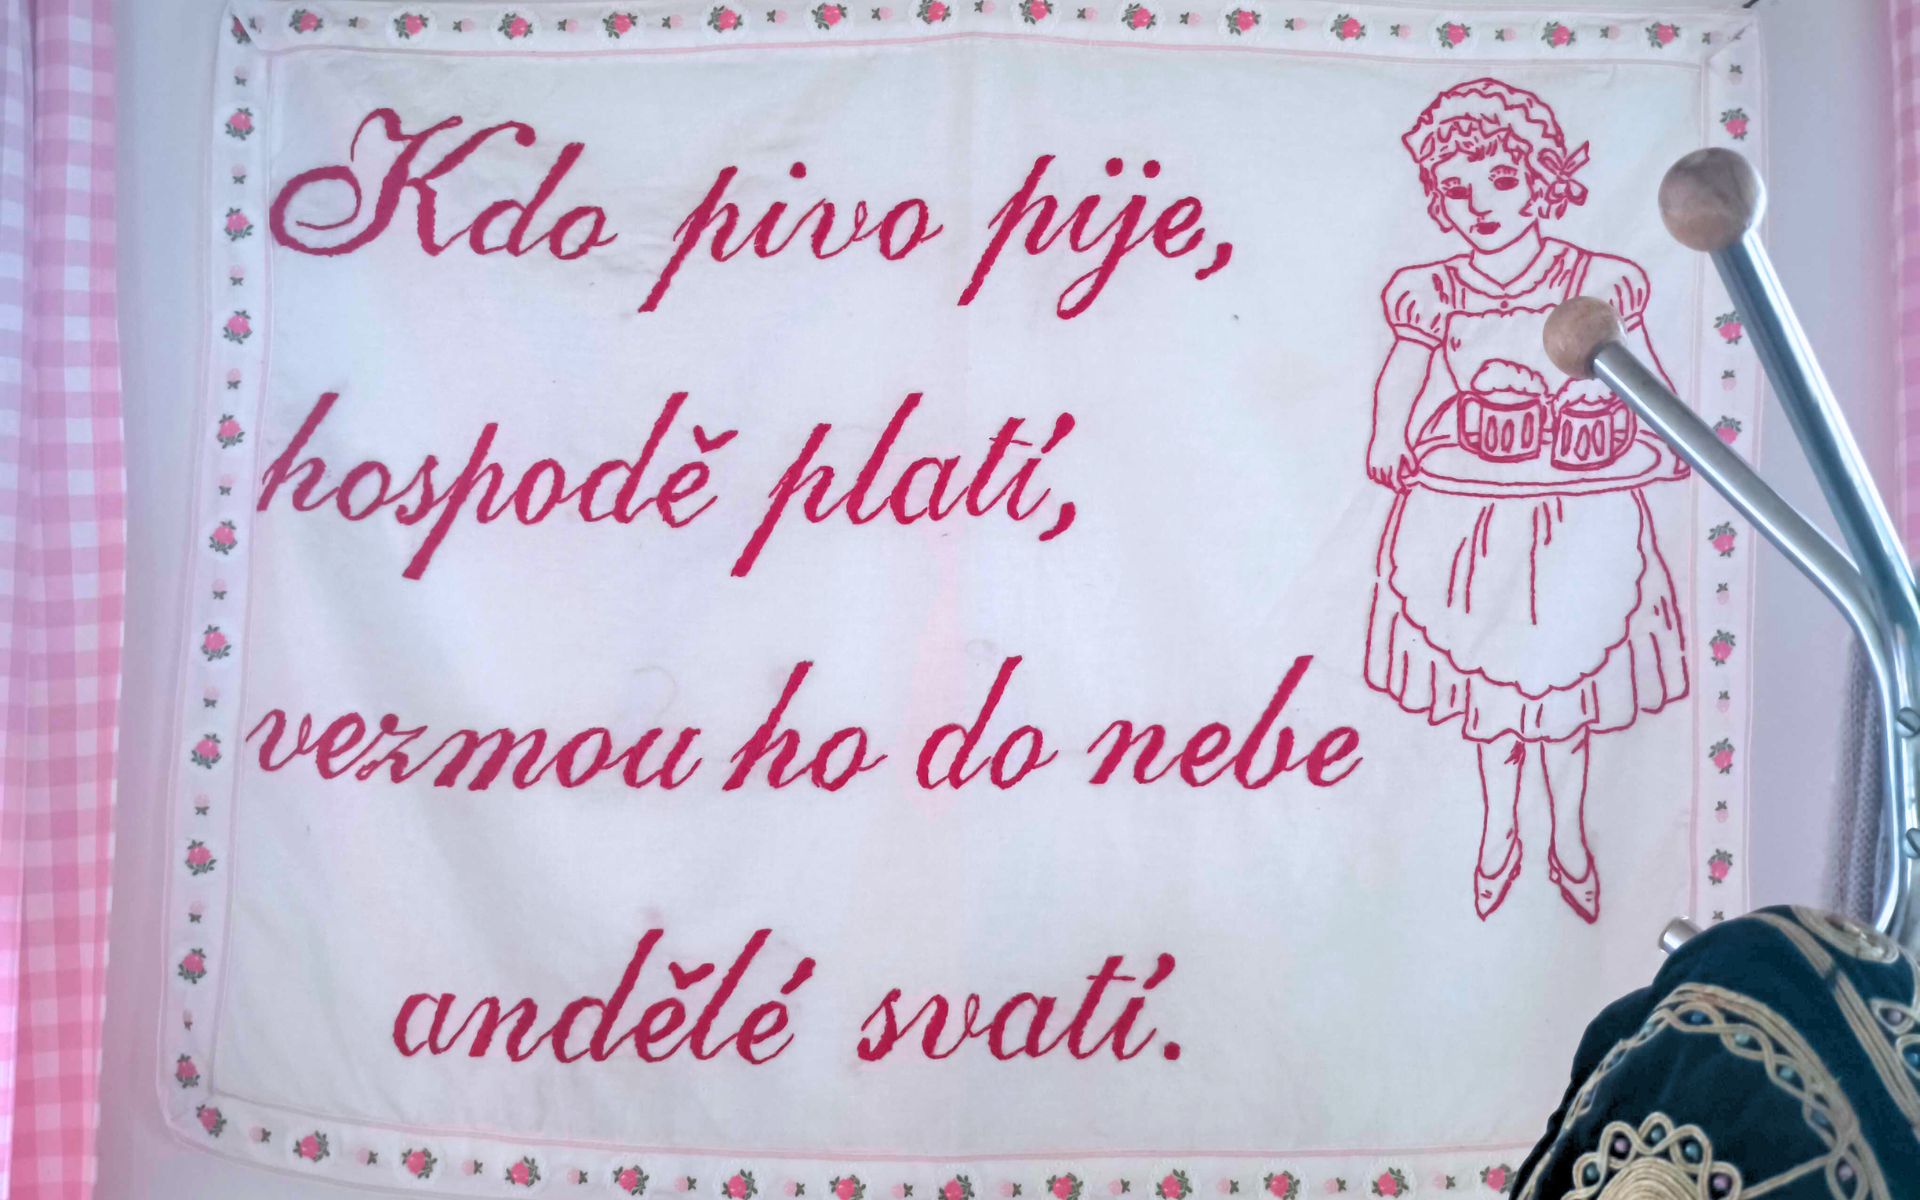 Kdo pivo pije,
hospodě platí,
vezmou ho do nebe
andělé svatí.